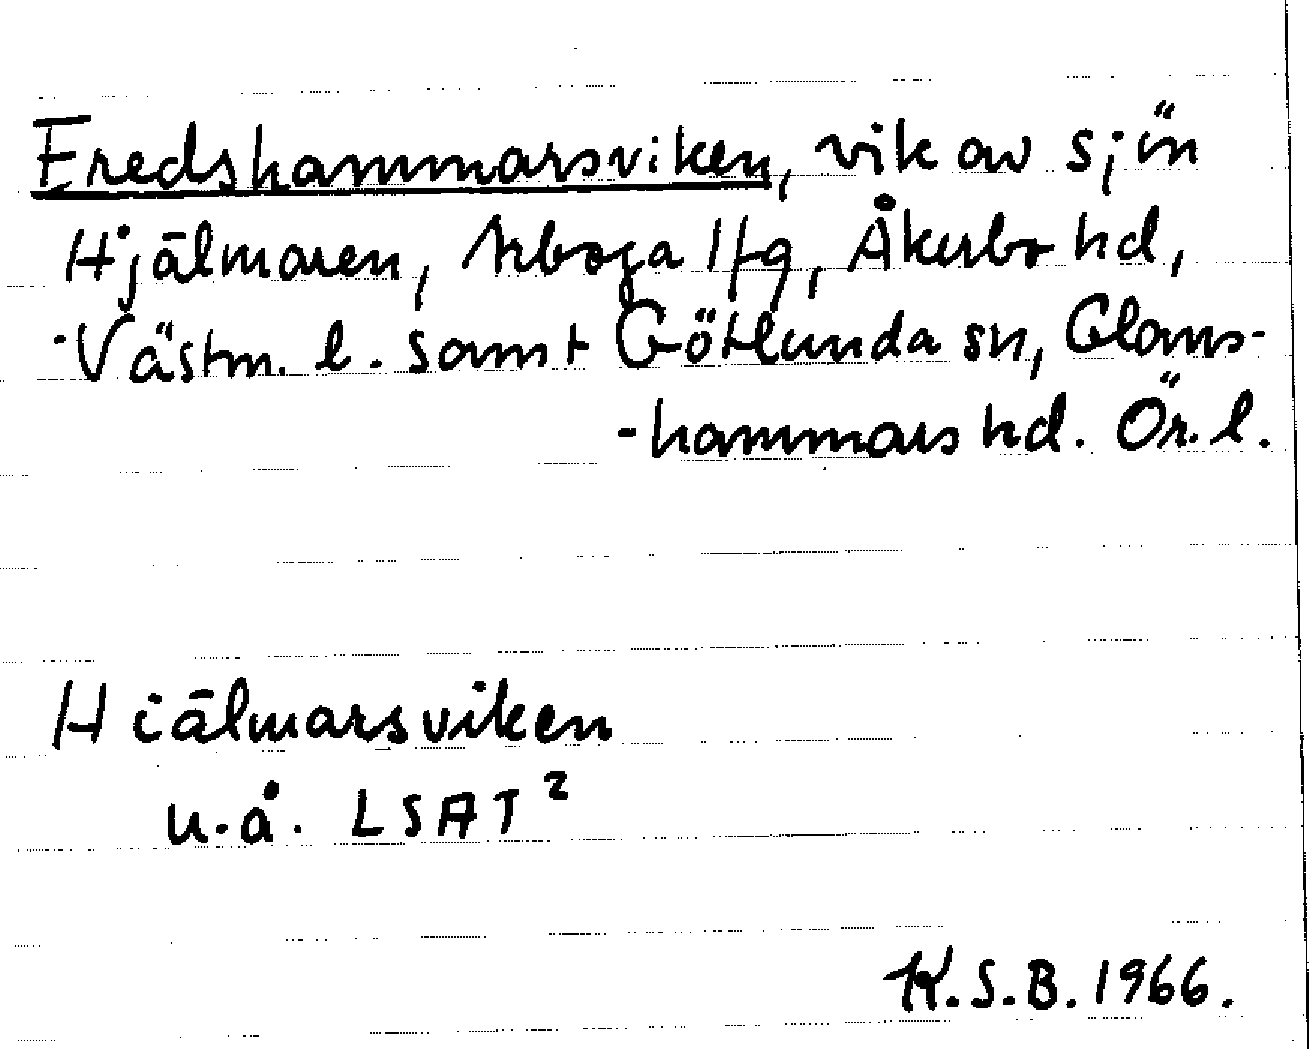 Fredshammarsviken, vik av sjön
Hjälmaren, Arboga lfg, Åkerbo hd,
Västm. l. samt Götlunda sn, Glans-
-hammars hd. Ör. l.
Hiälmarsviken
u.å. LSAT²
K.S.B. 1966.